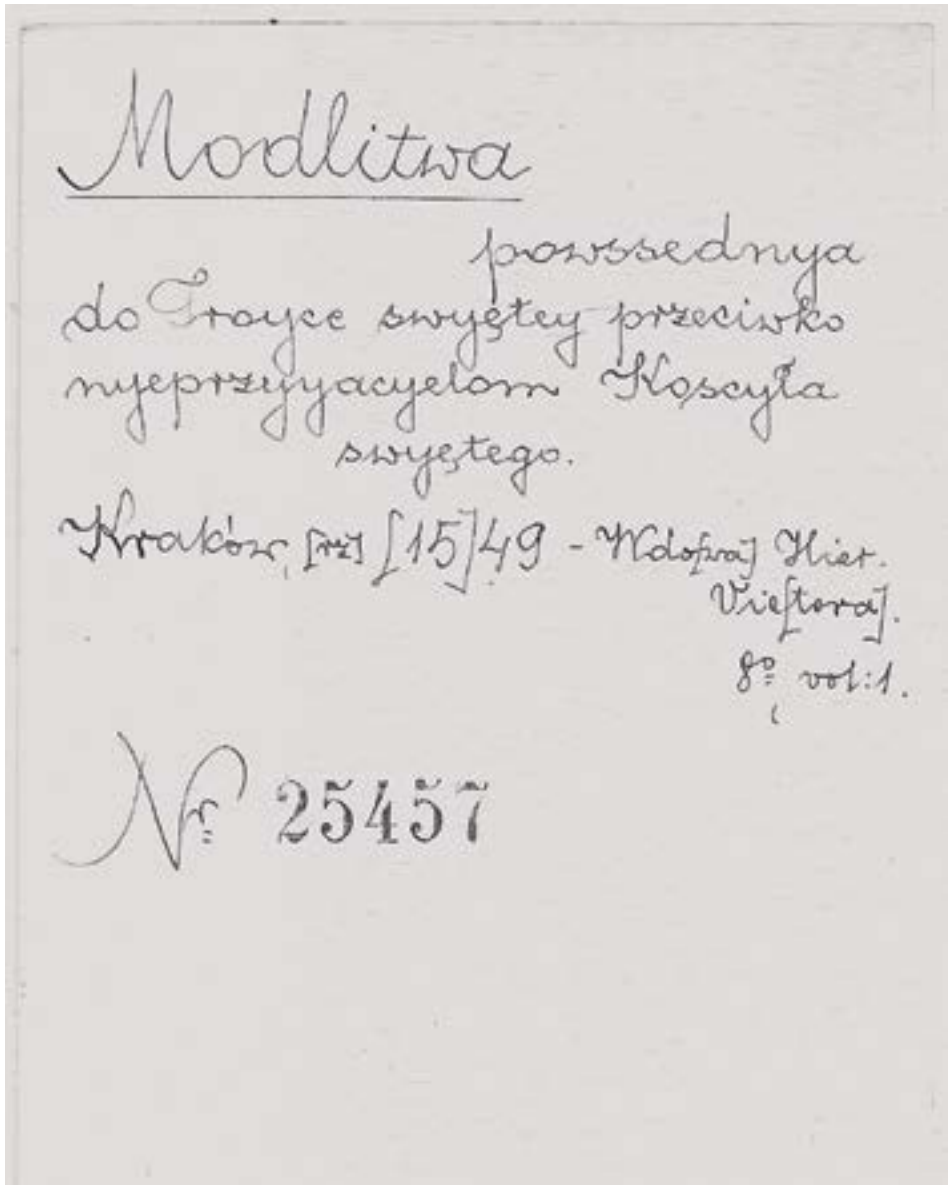 Modlitwa
powssednya
do Troyce swyętey przeciwko
nyeprzyyacyelom Koscyła
swyętego.
Kraków, [rż] [15]49 - Wdo[wa] Hier.
Vie[tora].
8º, vol:1.
Nr 25457